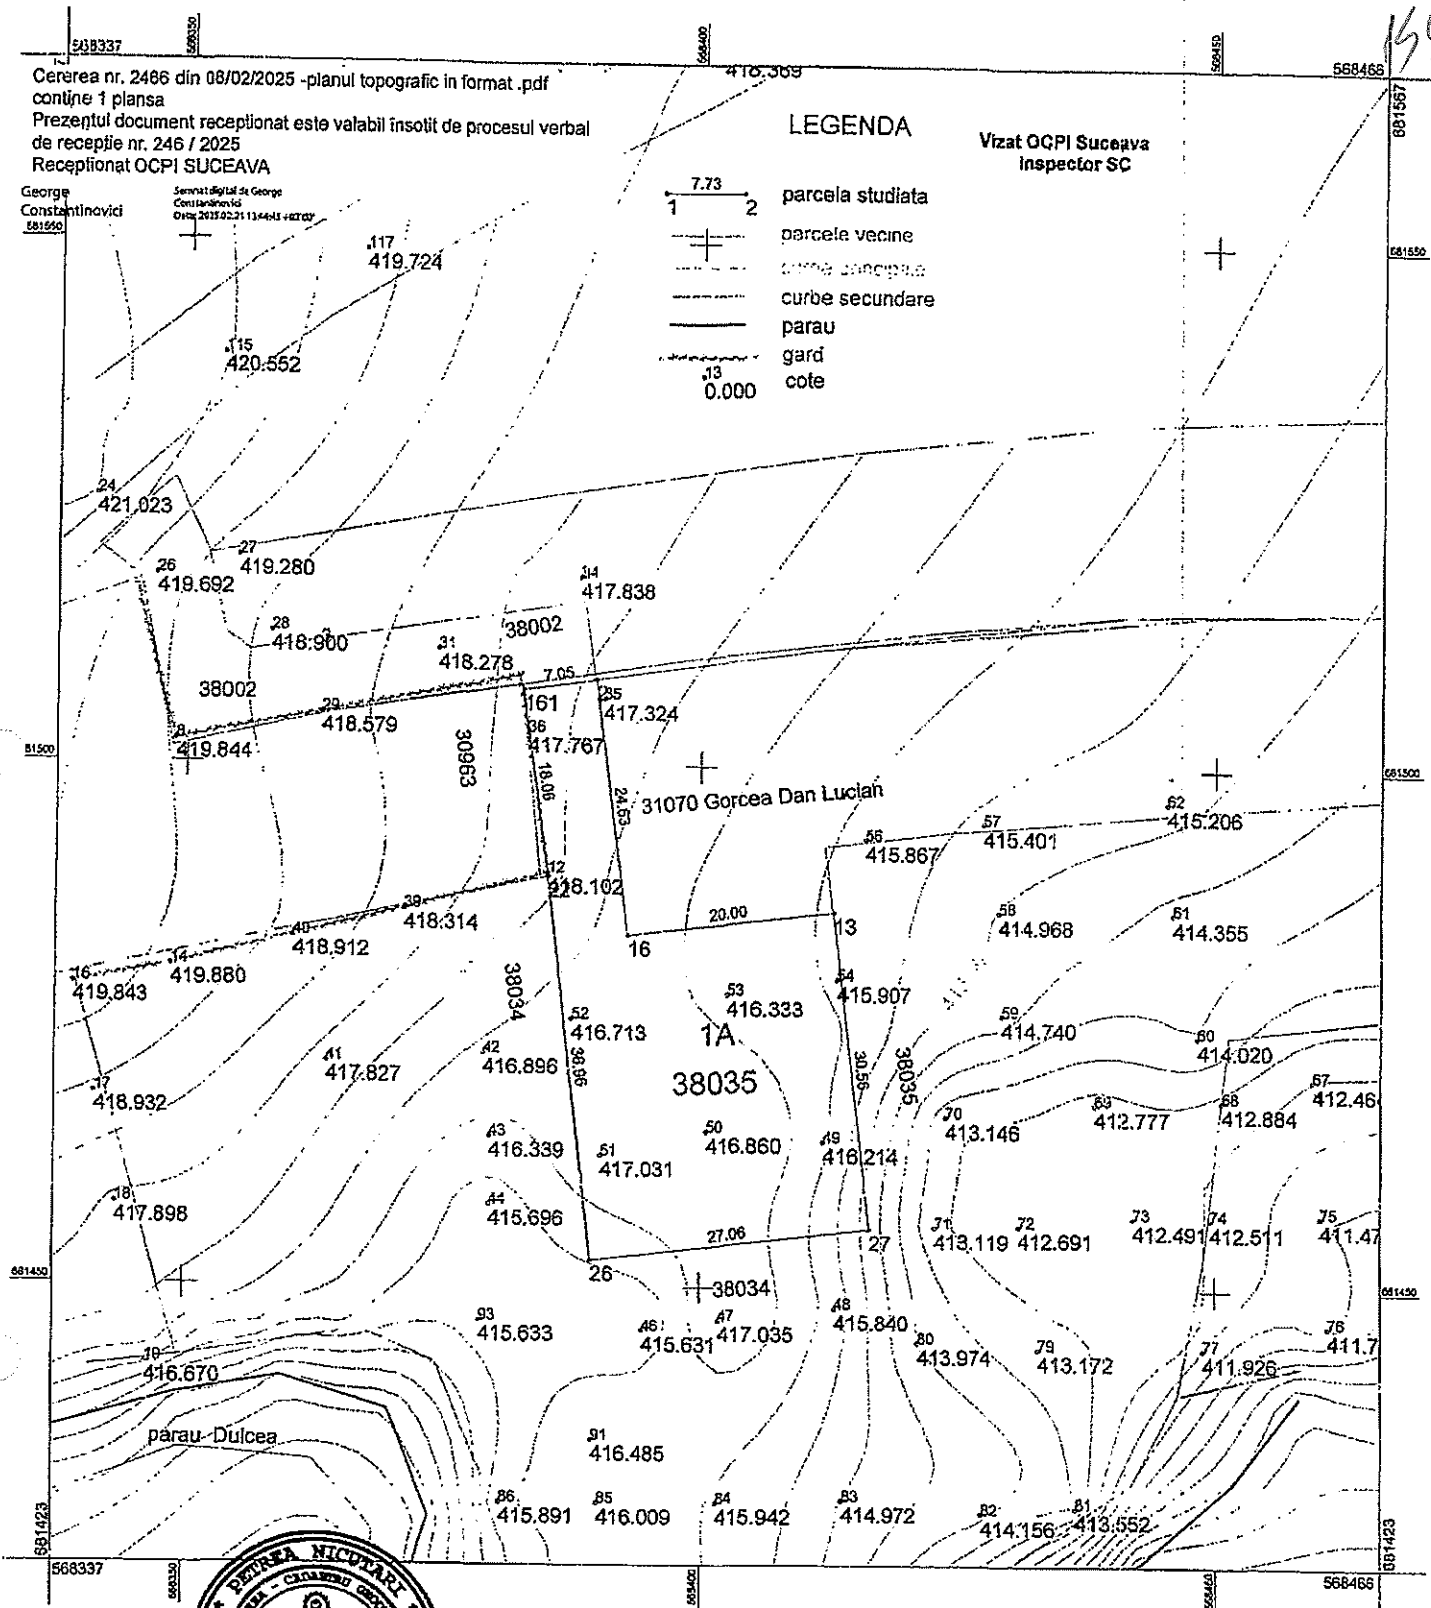 568337
568350
568400
568450
568466
418.389
681567
Cererea nr. 2466 din 08/02/2025 -planul topografic in format .pdf
contine 1 plansa
Prezentul document receptionat este valabil însotit de procesul verbal
de recepție nr. 246 / 2025
Receptionat OCPI SUCEAVA
George
Constantinovici
Semnat digital de George
Constantinovici
LEGENDA
Vizat OCPI Suceava
Inspector SC
7.73
1 2
parcela studiata
parcele vecine
curbe principale
curbe secundare
parau
gard
13
0.000
cote
681550
681550
117
419.724
115
420.552
24
421.023
27
419.280
26
419.692
34
417.838
28
418.900
38002
31
418.278
38002
7.05
161
35
417.324
29
418.579
8
419.844
36
417.767
30963
18.06
24.63
31070 Gorcea Dan Lucian
681500
62
415.206
57
415.401
56
415.867
12
418.102
22
39
418.314
40
418.912
14
419.880
16
419.843
20.00
16
13
58
414.968
61
414.355
38034
54
415.907
53
416.333
52
416.713
1A
59
414.740
60
414.020
41
417.827
42
416.896
36.96
38035
30.56
38035
17
418.932
70
413.146
69
412.777
68
412.884
67
412.46
43
416.339
51
417.031
50
416.860
49
416.214
18
417.898
44
415.696
27.06
26
27
71
413.119
72
412.691
73
412.491
74
412.511
75
411.47
681450
38034
681450
93
415.633
46
415.631
47
417.035
48
415.840
80
413.974
79
413.172
77
411.926
76
411.7
19
416.670
parau Dulcea
91
416.485
86
415.891
85
416.009
84
415.942
83
414.972
82
414.156
81
413.552
681423
681423
568337
568350
568400
568466
PETREA NICUTARI